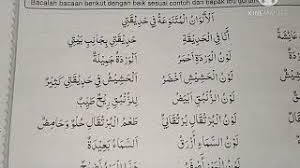 Bacalah bacaan berikut dengan baik sesuai contoh dari bapak ibu guru
اَلْأَلْوَانُ الْمُتَنَوِّعَةُ فِي حَدِيْقَتِي
أَنَا فِي الْحَدِيْقَةِ حَدِيْقَتِي بِجَانِبِ بَيْتِي
لَوْنُ الْوَرْدَةِ أَحْمَرُ الْوَرْدَةُ جَمِيْلَةٌ
لَوْنُ الْحَشِيْشِ أَخْضَرُ الْحَشِيْشُ فِي حَدِيْقَتِي كَثِيْرٌ
لَوْنُ الزَّنْبَقِ أَبْيَضُ لِلزَّنْبَقِ رِيْحٌ طَيِّبٌ
لَوْنُ الْبُرْتُقَالِ بُرْتُقَالِيٌّ طَعْمُ الْبُرْتُقَالِ حُلْوٌ وَحَامِضٌ
لَوْنُ السَّمَاءِ أَزْرَقُ السَّمَاءُ بَعِيْدَةٌ